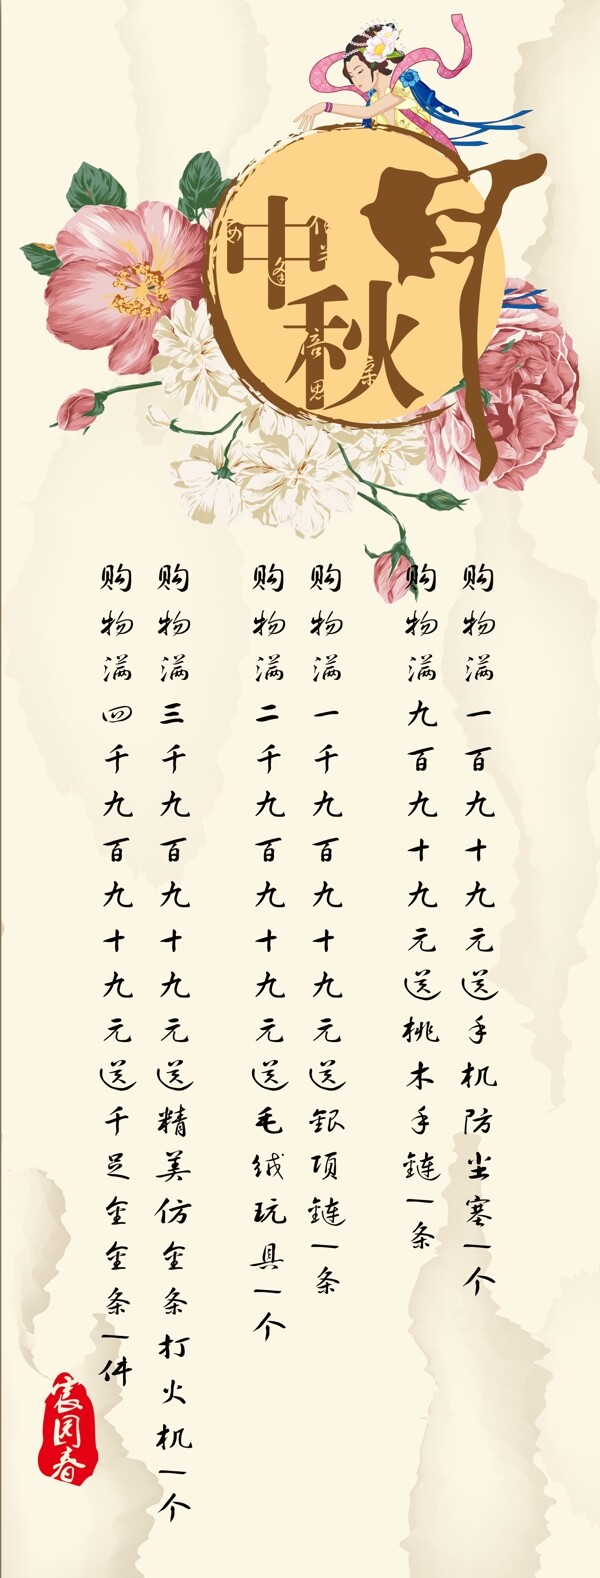 中秋月
逢
倍思亲
购物满一百九十九元送手机防尘塞一个
购物满九百九十九元送桃木手链一条
购物满一千九百九十九元送银项链一条
购物满二千九百九十九元送毛绒玩具一个
购物满三千九百九十九元送精美仿金条打火机一个
购物满四千九百九十九元送千足金金条一件
园春